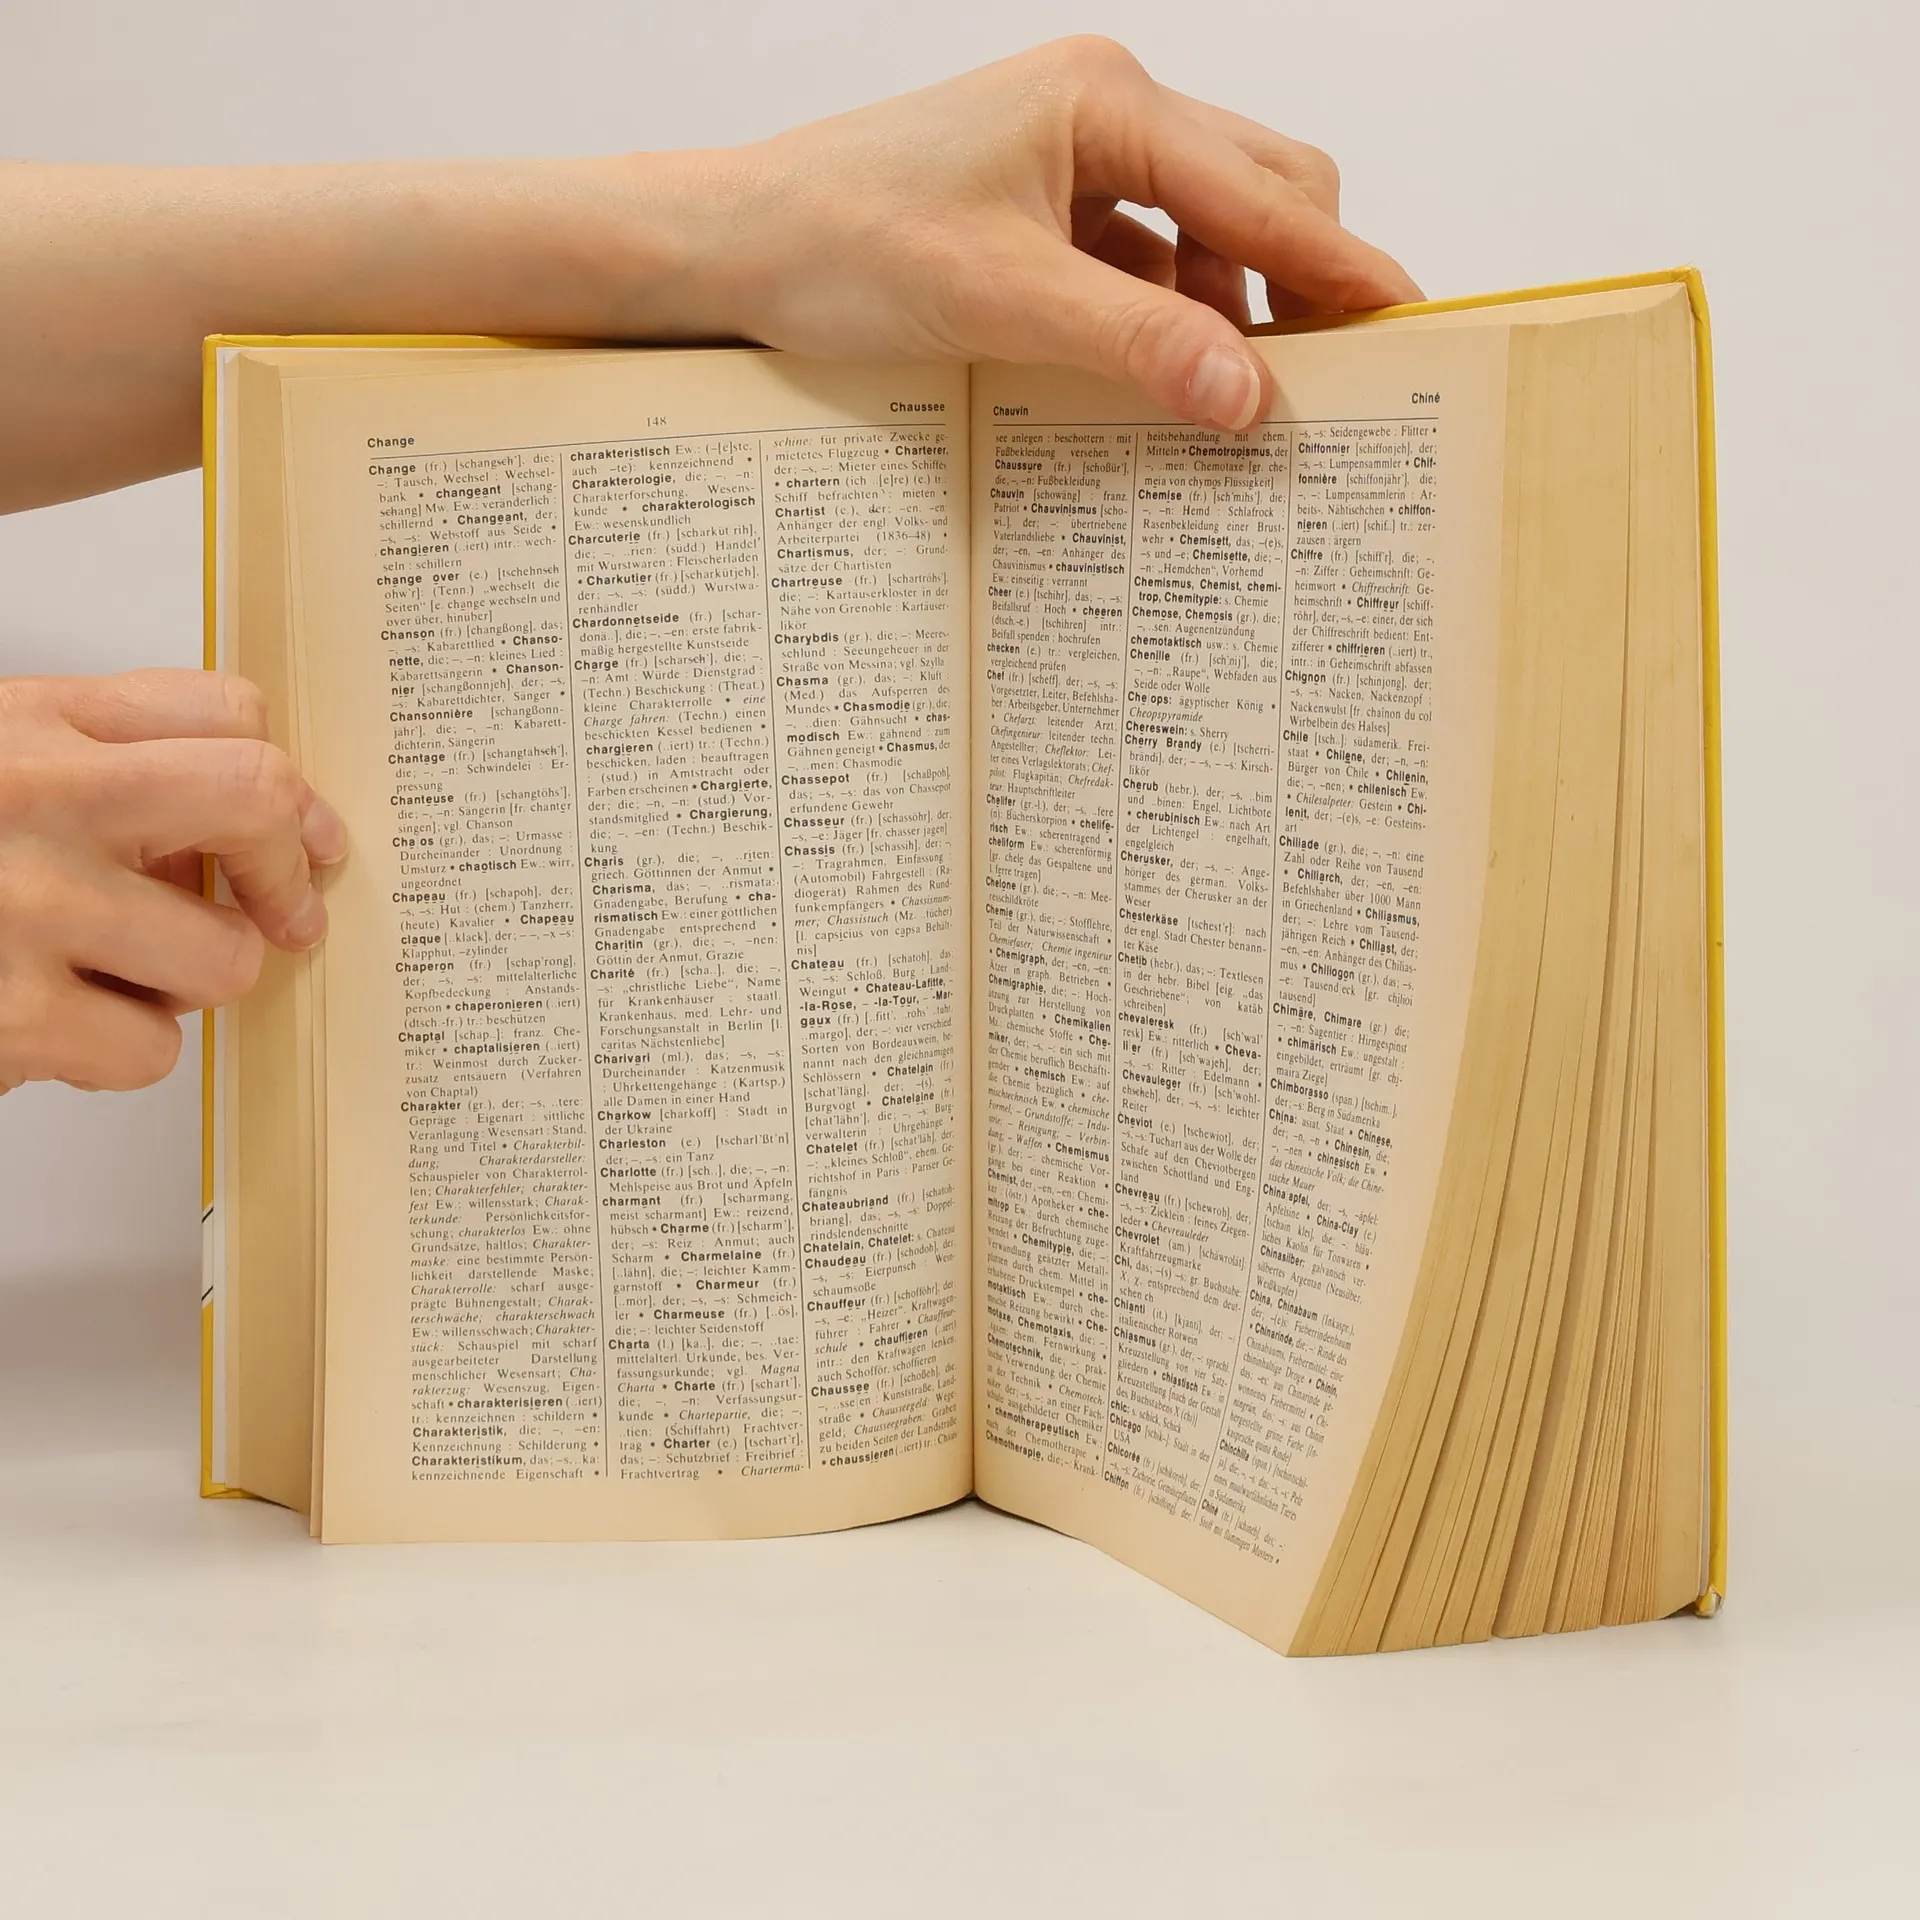 Change
148
Chaussee
Change (fr.) [schangsch'], die;
–: Tausch, Wechsel : Wechsel-
bank • changeant [schang-
schang] Mw. Ew.: veränderlich :
schillernd • Changeant, der;
–s, –s: Webstoff aus Seide •
changieren (..iert) intr.: wech-
seln : schillern
change over (e.) [tschehnsch
ohw'r]: (Tenn.) „wechselt die
Seiten“ [e. change wechseln und
over über, hinüber]
Chanson (fr.) [changßong], das;
–, –s: Kabarettlied • Chanso-
nette, die; –, –n: kleines Lied :
Kabarettsängerin • Chanson-
nier [schangßonnjeh], der; –s,
–s: Kabarettdichter, Sänger •
Chansonnière [schangßonn-
jähr'], die; –, –n: Kabarett-
dichterin, Sängerin
Chantage (fr.) [schangtahsch'],
die; –, –n: Schwindelei : Er-
pressung
Chanteuse (fr.) [schangtöhs'],
die; –, –n: Sängerin [fr. chanter
singen]; vgl. Chanson
Chaos (gr.), das; –: Urmasse :
Durcheinander : Unordnung :
Umsturz • chaotisch Ew.: wirr,
ungeordnet
Chapeau (fr.) [schapoh], der;
–s, –s: Hut : (chem.) Tanzherr,
(heute) Kavalier • Chapeau
claque [..klack], der; – –, –x –s:
Klapphut, –zylinder
Chaperon (fr.) [schap'rong],
der; –s, –s: mittelalterliche
Kopfbedeckung : Anstands-
person • chaperonieren (..iert)
(dtsch.-fr.) tr.: beschützen
Chaptal [schap..]: franz. Che-
miker • chaptalisieren (..iert)
tr.: Weinmost durch Zucker-
zusatz entsäuern (Verfahren
von Chaptal)
Charakter (gr.), der; –s, ..tere:
Gepräge : Eigenart : sittliche
Veranlagung : Wesensart : Stand,
Rang und Titel • Charakterbil-
dung; Charakterdarsteller:
Schauspieler von Charakterrol-
len; Charakterfehler; charakter-
fest Ew.: willensstark; Charak-
terkunde: Persönlichkeitsfor-
schung; charakterlos Ew.: ohne
Grundsätze, haltlos; Charakter-
maske: eine bestimmte Persön-
lichkeit darstellende Maske;
Charakterrolle: scharf ausge-
prägte Bühnengestalt; Charak-
terschwäche; charakterschwach
Ew.: willensschwach; Charakter-
stück: Schauspiel mit scharf
ausgearbeiteter Darstellung
menschlicher Wesensart; Cha-
rakterzug: Wesenszug, Eigen-
schaft • charakterisieren (..iert)
tr.: kennzeichnen : schildern •
Charakteristik, die; –, –en:
Kennzeichnung : Schilderung •
Charakteristikum, das; –s, ..ka:
kennzeichnende Eigenschaft •
charakteristisch Ew.: (–[e]ste,
auch –te): kennzeichnend •
Charakterologie, die; –, –n:
Charakterforschung, Wesens-
kunde • charakterologisch
Ew.: wesenskundlich
Charcuterie (fr.) [scharküt rih],
die; –, ..rien: (südd.) Handel
mit Wurstwaren : Fleischerladen
• Charkutier (fr.) [scharkütjeh],
der; –s, –s: (südd.) Wurstwa-
renhändler
Chardonnetseide (fr.) [schar-
dona..], die; –, –en: erste fabrik-
mäßig hergestellte Kunstseide
Charge (fr.) [scharsch'], die; –,
–n: Amt : Würde : Dienstgrad :
(Techn.) Beschickung : (Theat.)
kleine Charakterrolle • eine
Charge fahren: (Techn.) einen
beschickten Kessel bedienen •
chargieren (..iert) tr.: (Techn.)
beschicken, laden : beauftragen
: (stud.) in Amtstracht oder
Farben erscheinen • Chargierte,
der; die; –n, –n: (stud.) Vor-
standsmitglied • Chargierung,
die; –, –en: (Techn.) Beschik-
kung
Charis (gr.), die; –, ..riten:
griech. Göttinnen der Anmut •
Charisma, das; –, ..rismata:
Gnadengabe, Berufung • cha-
rismatisch Ew.: einer göttlichen
Gnadengabe entsprechend •
Charitin (gr.), die; –, –nen:
Göttin der Anmut, Grazie
Charité (fr.) [scha..], die; –,
–s: „christliche Liebe“, Name
für Krankenhäuser : staatl.
Krankenhaus, med. Lehr- und
Forschungsanstalt in Berlin [l.
caritas Nächstenliebe]
Charivari (ml.), das; –s, –s:
Durcheinander : Katzenmusik
: Uhrkettengehänge : (Kartsp.)
alle Damen in einer Hand
Charkow [charkoff] : Stadt in
der Ukraine
Charleston (e.) [tscharl'ßt'n]
der; –, –s: ein Tanz
Charlotte (fr.) [sch..], die; –, –n:
Mehlspeise aus Brot und Äpfeln
charmant (fr.) [scharmang,
meist scharmant] Ew.: reizend,
hübsch • Charme (fr.) [scharm'],
der; –s: Reiz : Anmut; auch
Scharm • Charmelaine (fr.)
[..lähn], die; –: leichter Kamm-
garnstoff • Charmeur (fr.)
[..mör], der; –s, –s: Schmeich-
ler • Charmeuse (fr.) [..ös],
die; –: leichter Seidenstoff
Charta (l.) [ka..], die; –, ..tae:
mittelalterl. Urkunde, bes. Ver-
fassungsurkunde; vgl. Magna
Charta • Charte (fr.) [schart'],
die; –, –n: Verfassungsur-
kunde • Chartepartie, die; –,
..tien: (Schiffahrt) Frachtver-
trag • Charter (e.) [tschart'r],
das; –: Schutzbrief : Freibrief :
Frachtvertrag • Charterma-
schine: für private Zwecke ge-
mietetes Flugzeug • Charterer,
der; –s, –: Mieter eines Schiffes
• chartern (ich ..[e]re) (e.) tr.:
Schiff befrachten : mieten •
Chartist (e.), der; –en, –en:
Anhänger der engl. Volks- und
Arbeiterpartei (1836–48) •
Chartismus, der; –: Grund-
sätze der Chartisten
Chartreuse (fr.) [schartröhs'],
die; –: Kartäuserkloster in der
Nähe von Grenoble : Kartäuser-
likör
Charybdis (gr.), die; –: Meeres-
schlund : Seeungeheuer in der
Straße von Messina; vgl. Szylla
Chasma (gr.), das; –: Kluft :
(Med.) das Aufsperren des
Mundes • Chasmodie (gr.), die;
–, ..dien: Gähnsucht • chas-
modisch Ew.: gähnend : zum
Gähnen geneigt • Chasmus, der
–, ..men: Chasmodie
Chassepot (fr.) [schaßpoh],
das; –s, –s: das von Chassepot
erfundene Gewehr
Chasseur (fr.) [schassöhr], der,
–s, –e: Jäger [fr. chasser jagen]
Chassis (fr.) [schassih], der; –,
–: Tragrahmen, Einfassung :
(Automobil) Fahrgestell : (Ra-
diogerät) Rahmen des Rund-
funkempfängers • Chassisnum-
mer; Chassistuch (Mz. ..tücher)
[l. capsicius von capsa Behält-
nis]
Chateau (fr.) [schatoh], das;
–s, –s: Schloß, Burg : Land-
Weingut • Chateau-Lafitte, –
-la-Rose, – -la-Tour, – -Mar-
gaux (fr.)
..margo], der; –: vier verschied.
Sorten von Bordeauxwein, be-
nannt nach den gleichnamigen
Schlössern • Chatelain (fr.)
[schat'läng], der; –(s), –s:
Burgvogt • Chatelaine (fr.)
[chat'lähn'], die; –, –s: Burg-
verwalterin : Uhrgehänge •
Chatelet (fr.) [schat'läh], der;
–: „kleines Schloß“, ehem. Ge-
richtshof in Paris : Pariser Ge-
fängnis
Chateaubriand (fr.) [schatoh-
briang], das; –s, –s: Doppel-
rindslendenschnitte
Chatelain, Chatelet: s. Chateau
Chaudeau (fr.) [schodoh], der;
–s, –s: Eierpunsch : Wein-
schaumsoße
Chauffeur (fr.) [schofföhr], der;
–s, –e: „Heizer“, Kraftwagen-
führer : Fahrer • Chauffeur-
schule • chauffieren (..iert)
intr.: den Kraftwagen lenken,
auch Schofför, schoffieren
Chaussee (fr.) [schoßeh], die;
–, ..sse|en : Kunststraße, Land-
straße • Chausseegeld: Wege-
geld; Chausseegraben: Graben
zu beiden Seiten der Landstraße
• chaussieren (..iert) tr.: Chaus-
Chauvin
Chiné
see anlegen : beschottern : mit
Fußbekleidung versehen •
Chaussure (fr.) [schoßür'],
die, –, –n: Fußbekleidung
Chauvin [schowäng] : franz.
Patriot • Chauvinismus [scho-
wi..], der; –: übertriebene
Vaterlandsliebe • Chauvinist,
der; –en, –en: Anhänger des
Chauvinismus • chauvinistisch
Ew.: einseitig : verrannt
Cheer (e.) [tschihr], das; –, –s:
Beifallsruf : Hoch • cheeren
(dtsch.-e.) [tschihren] intr.:
Beifall spenden : hochrufen
checken (e.) tr.: vergleichen,
vergleichend prüfen
Chef (fr.) [scheff], der; –s, –s:
Vorgesetzter, Leiter, Befehlsha-
ber : Arbeitsgeber, Unternehmer
• Chefarzt: leitender Arzt;
Chefingenieur: leitender techn.
Angestellter; Cheflektor: Lei-
ter eines Verlagslektorats; Chef-
pilot: Flugkapitän; Chefredak-
teur: Hauptschriftleiter
Chelifer (gr.-l.), der; –s, ..fere
(n): Bücherskorpion • chelife-
risch Ew.: scherentragend •
cheliform Ew.: scherenförmig
[gr. chele das Gespaltene und
l. ferre tragen]
Chelone (gr.), die; –, –n: Mee-
resschildkröte
Chemie (gr.), die; –: Stofflehre,
Teil der Naturwissenschaft •
Chemiefaser; Chemie ingenieur
• Chemigraph, der; –en, –en:
Ätzer in graph. Betrieben •
Chemigraphie, die; –: Hoch-
ätzung zur Herstellung von
Druckplatten • Chemikalien
Mz.: chemische Stoffe • Che-
miker, der; –s, –: ein sich mit
der Chemie beruflich Beschäfti-
gender • chemisch Ew.: auf
die Chemie bezüglich • che-
mischtechnisch Ew. • chemische
Formel; – Grundstoffe; – Indu-
strie; – Reinigung; – Verbin-
dung; – Waffen • Chemismus
(gr.), der; –: chemische Vor-
gänge bei einer Reaktion •
Chemist, der, –en, –en: Chemi-
ker : (östr.) Apotheker • che-
mitrop Ew.: durch chemische
Reizung der Befruchtung zuge-
wendet • Chemitypie, die; –:
Verwandlung geätzter Metall-
platten durch chem. Mittel in
erhabene Druckstempel • che-
motaktisch Ew.: durch che-
mische Reizung bewirkt • Che-
motaxe, Chemotaxis, die; –,
..taxen: chem. Fernwirkung •
Chemotechnik, die; –: prak-
tische Verwendung der Chemie
in der Technik • Chemotech-
niker, der; –s, –: an einer Fach-
schule ausgebildeter Chemiker
• chemotherapeutisch Ew.:
nach der Chemotherapie •
Chemotherapie, die; –: Krank-
heitsbehandlung mit chem.
Mitteln • Chemotropismus, der
–, ..men: Chemotaxe [gr. che-
meia von chymos Flüssigkeit]
Chemise (fr.) [sch'mihs'], die;
–, –n: Hemd : Schlafrock :
Rasenbekleidung einer Brust-
wehr • Chemisett, das; –(e)s,
–s und –e; Chemisette, die; –,
–n: „Hemdchen“, Vorhemd
Chemismus, Chemist, chemi-
trop, Chemitypie: s. Chemie
Chemose, Chemosis (gr.), die;
–, ..sen: Augenentzündung
chemotaktisch usw.: s. Chemie
Chenille (fr.) [sch'nij'], die;
–, –n: „Raupe“, Webfaden aus
Seide oder Wolle
Che|ops: ägyptischer König •
Cheopspyramide
Chereswein: s. Sherry
Cherry Brandy (e.) [tscherri-
brändi], der; – –s, – –s: Kirsch-
likör
Cherub (hebr.), der; –s, ..bim
und ..binen: Engel, Lichtbote
• cherubinisch Ew.: nach Art
der Lichtengel : engelhaft,
engelgleich
Cherusker, der; –s, –: Ange-
höriger des german. Volks-
stammes der Cherusker an der
Weser
Chesterkäse [tschest'r]: nach
der engl. Stadt Chester benann-
ter Käse
Chetib (hebr.), das; –: Textlesen
in der hebr. Bibel [eig. „das
Geschriebene“; von katâb
schreiben]
chevaleresk (fr.) [sch'wal'
resk] Ew.: ritterlich • Cheva-
lier (fr.) [sch'wajeh], der;
–s, –s: Ritter : Edelmann •
Chevauleger (fr.) [sch'wohl-
ehscheh], der; –s, –s: leichter
Reiter
Cheviot (e.) [tschewiot], der;
–s, –s: Tuchart aus der Wolle der
Schafe auf den Cheviotbergen
zwischen Schottland und Eng-
land
Chevreau (fr.) [schewroh], der,
–s, –s: Zicklein : feines Ziegen-
leder • Chevreauleder
Chevrolet (am.) [schäwrolät]:
Kraftfahrzeugmarke
Chi, das; –(s) –s: gr. Buchstabe:
X, χ, entsprechend dem deut-
schen ch
Chianti (it.) [kjanti], der; –:
italienischer Rotwein
Chiasmus (gr.), der; –: sprachl.
Kreuzstellung von vier Satz-
gliedern • chiastisch Ew.: in
Kreuzstellung [nach der Gestalt
des Buchstabens X (chi)]
chic: s. schick, Schick
Chicago [schik–]: Stadt in den
USA
Chicorée (fr.) [schikoreh], der;
–s, –s: Zichorie, Gemüsepflanze
Chiffon (fr.) [schiffong], der;
–s, –s: Seidengewebe : Flitter •
Chiffonnier [schiffonjeh], der;
–s, –s: Lumpensammler • Chif-
fonnière [schiffonjähr'], die;
–, –: Lumpensammlerin : Ar-
beits-, Nähtischchen • chiffon-
nieren (..iert) [schif..] tr.: zer-
zausen : ärgern
Chiffre (fr.) [schiff'r], die; –,
–n: Ziffer : Geheimschrift: Ge-
heimwort • Chiffreschrift: Ge-
heimschrift • Chiffreur [schiff-
röhr], der, –s, –e: einer, der sich
der Chiffreschrift bedient: Ent-
zifferer • chiffrieren (..iert) tr.,
intr.: in Geheimschrift abfassen
Chignon (fr.) [schinjong], der;
–s, –s: Nacken, Nackenzopf :
Nackenwulst [fr. chaînon du col
Wirbelbein des Halses]
Chile [tsch..]: südamerik. Frei-
staat • Chilene, der; –n, –n:
Bürger von Chile • Chilenin,
die; –, –nen; • chilenisch Ew.
• Chilesalpeter: Gestein • Chi-
lenit, der; –(e)s, –e: Gesteins-
art
Chiliade (gr.), die; –, –n: eine
Zahl oder Reihe von Tausend
• Chiliarch, der; –en, –en:
Befehlshaber über 1000 Mann
in Griechenland • Chiliasmus,
der; –: Lehre vom Tausend-
jährigen Reich • Chiliast, der;
–en, –en: Anhänger des Chilias-
mus • Chiliogon (gr.), das; –s,
–e: Tausend eck [gr. chilioi
tausend]
Chimäre, Chimare (gr.) die;
–, –n: Sagentier : Hirngespinst
• chimärisch Ew.: ungestalt :
eingebildet, erträumt [gr. chi-
maira Ziege]
Chimborasso (span.) [tschim..],
der; –s: Berg in Südamerika
China: asiat. Staat • Chinese,
der; –n, –n • Chinesin, die;
–, –nen • chinesisch Ew. •
das chinesische Volk; die Chine-
sische Mauer
China apfel, der; –s, –äpfel:
Apfelsine • China-Clay (e.)
[tschain klei], der; –: bläu-
liches Kaolin für Tonwaren •
Chinasilber: galvanisch ver-
silbertes Argentan (Neusilber,
Weißkupfer)
China, Chinabaum (Inkaspr.),
der, –(e)s: Fieberrindenbaum
• Chinarinde, die; –: Rinde des
Chinabaums, Fiebermittel: eine
chininhaltige Droge • Chinin,
das; –es: aus Chinarinde ge-
wonnenes Fiebermittel • Chi-
ningrün, das, –s: aus Chinin
hergestellte grüne Farbe [In-
kasprache quina Rinde]
Chinchilla (span.) [tschintschil-
ja], die; –, –s; das; –s, –s: Pelz
eines maulwurfähnlichen Tieres
in Südamerika
Chiné (fr.) [schineh], das; –:
Stoff mit flammigen Mustern •